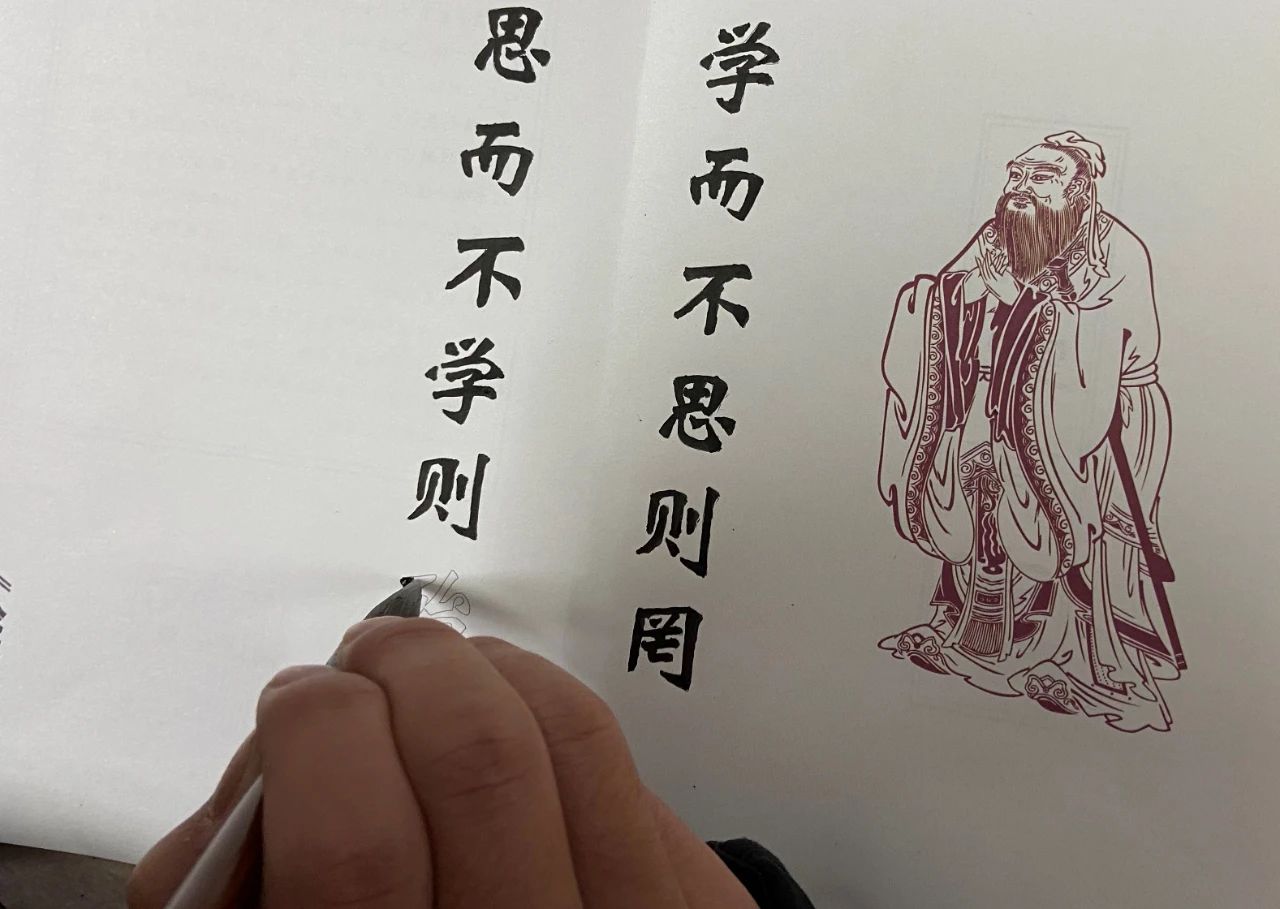 学而不思则罔
思而不学则